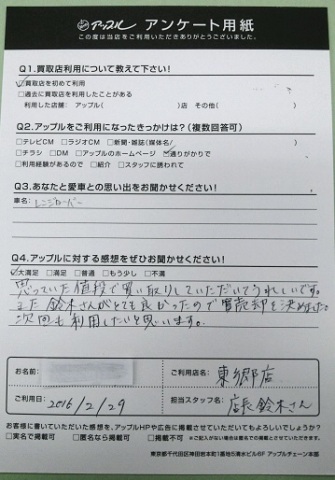 アップル アンケート用紙
この度は当店をご利用いただきありがとうございました。
Q1.買取店利用について教えて下さい!
☑買取店を初めて利用
□過去に買取店を利用したことがある
利用した店舗: アップル( )店 その他( )
Q2.アップルをご利用になったきっかけは?(複数回答可)
□テレビCM □ラジオCM □新聞・雑誌(媒体名 )
□チラシ □DM □アップルのホームページ ☑通りがかりで
□利用経験があるので □紹介 □スタッフに誘われて
Q3.あなたと愛車との思い出をお聞かせください!
車名: レンジローバー
Q4.アップルに対する感想をぜひお聞かせください!
☑大満足 □満足 □普通 □もう少し □不満
思っていた値段で買い取りしていただいてうれしいです。
また鈴木さんがとても良かったので売却を決めました。
次回も利用したいと思います。
お名前
ご利用店名: 東郷店
ご利用日 2016/2/29
担当スタッフ名: 店長鈴木さん
お客様に書いていただいた感想を、アップルHPや広告に掲載させていただいてもよろしいでしょうか?
□実名で掲載可 □匿名なら掲載可 □掲載不可 ※ご記入がない場合は匿名での掲載とさせていただきます。
東京都千代田区神田岩本町1番地5清水ビル6F アップルチェーン本部